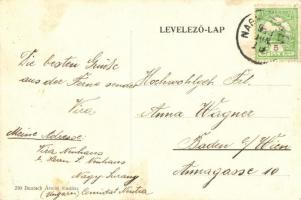 LEVELEZŐ-LAP
Die besten Grüße
aus der Ferne sendet
Vira
Meine Adresse:
Vira Neuhaus
b. Herrn L. Neuhaus
Nagy Surany
(Ungarn) Comitat Neutra
Hochwohlgeb. Frl.
Anna Wagner
Baden b/ Wien
Annagasse 10